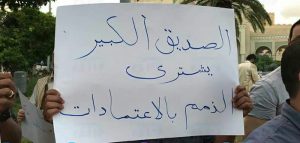 الصديق ألكبير
يشترى
الذمم بالاعتمادات